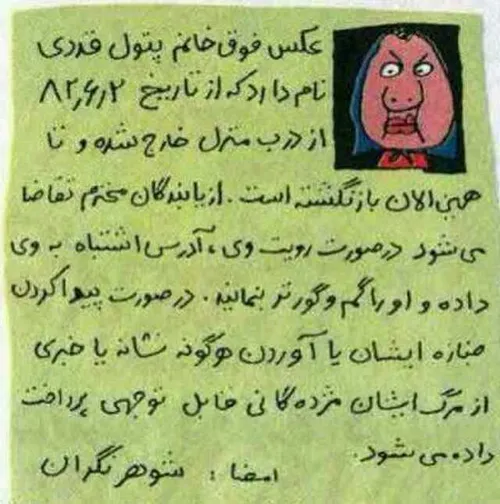 عکس فوق خانم بتول قندی
نام دارد که از تاریخ ۸۲٫۶٫۲
از درب منزل خارج شده و تا
همین الان بازنگشته است. از یابندگان محترم تقاضا
می شود در صورت رویت وی، آدرس اشتباه به وی
داده و او را گم و گورتر بنمایند. در صورت پیدا کردن
جنازه ایشان یا آوردن هرگونه نشانه یا خبری
از مرگ ایشان مژده گانی قابل توجهی پرداخت
داده می شود.
امضا: شوهر نگران